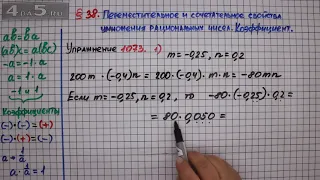 4 A 5. ru
§ 38. Переместительное и сочетательное свойства
умножения рациональных чисел. Коэффициент.
ab=ba
(ab)c=a(bc)
-a=-1·a
a=1·a
-1 и 1
Коэффициенты
(-)·(-)=(+)
(-)·(+)=(-)
a·1/a=1
Упражнение 1073. 1)
m=-0,25, n=0,2
200m·(-0,4)n=200·(-0,4)·m·n=-80mn
Если m=-0,25, n=0,2, то -80·(-0,25)·0,2=
=80·0,050=